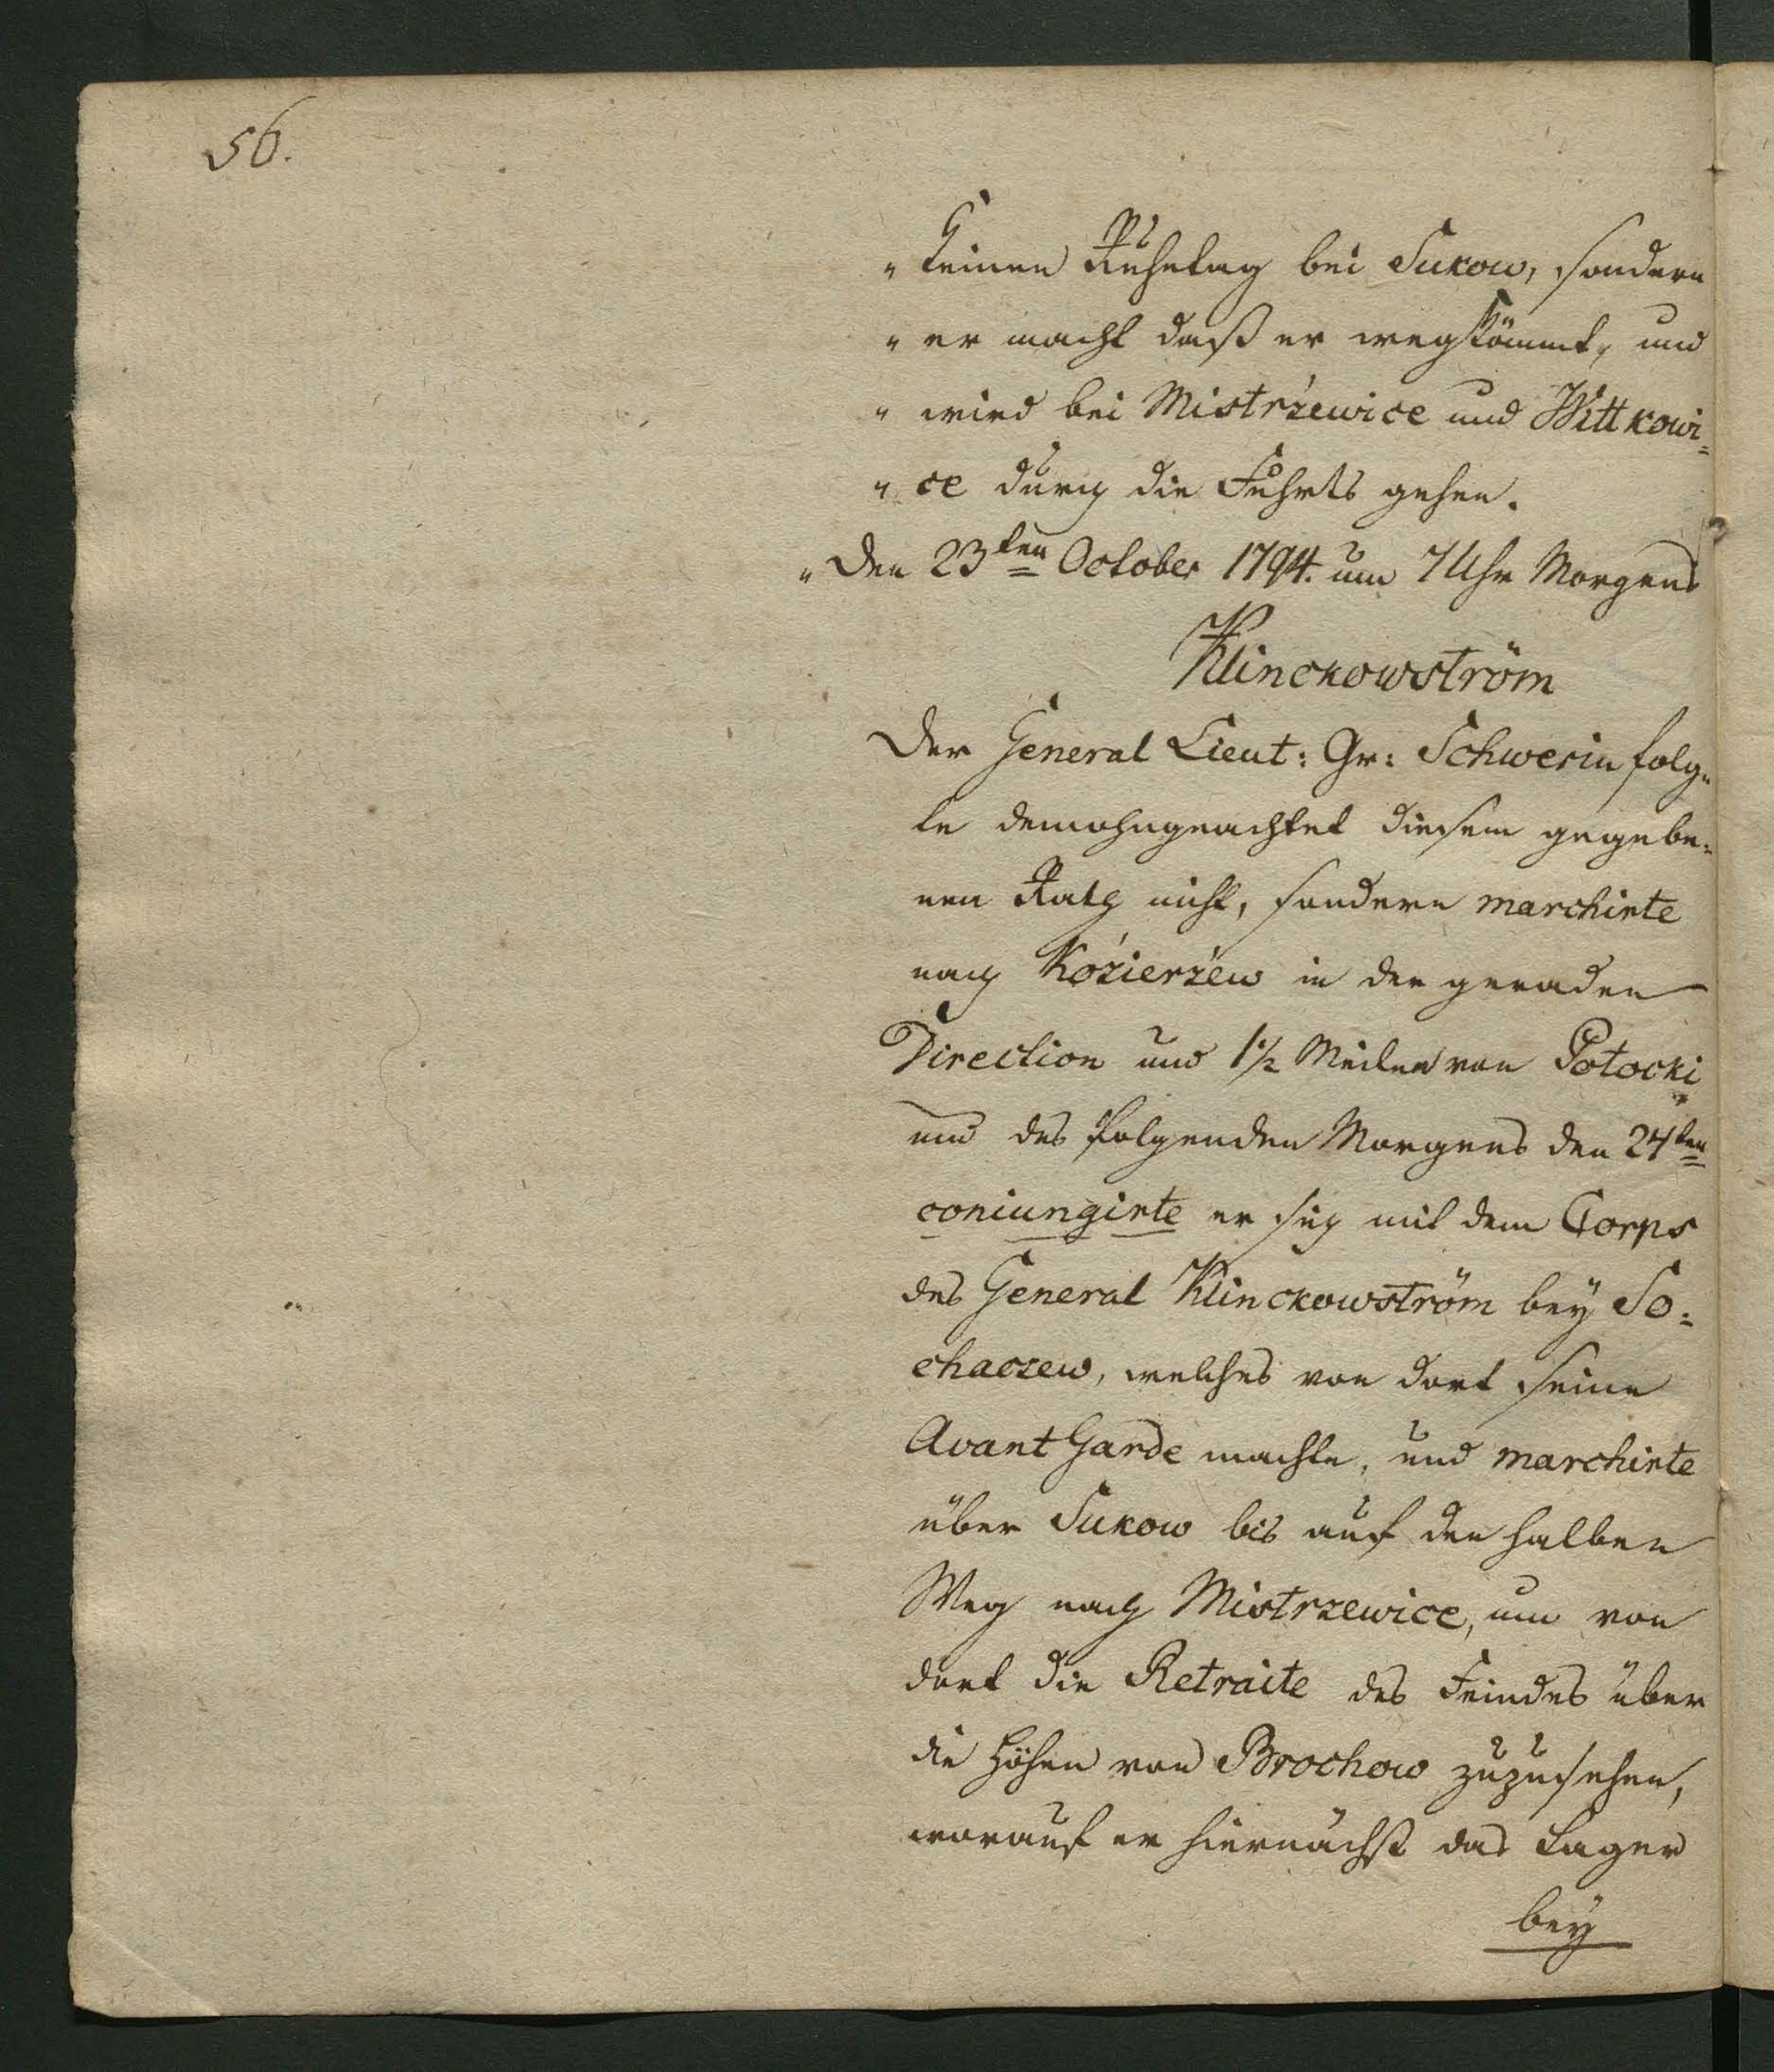 56.
„ keinen Ruhetag bei Sukow, sondern
„ er macht daß er wegkömmt, und
„ wird bei Mistrzewice und Wittkowi=
„ ce durch die Fuhrts gehen.
„ Den 23ten October 1794. um 7 Uhr Morgens
Klinckowström
Der General Lieut: Gr: Schwerin folg=
te demohngeachtet diesem gegebe=
nen Rath nicht, sondern marchirte
nach Kózierzéw in der geraden
Direction und 1½ Meilen von Potocki
und des folgenden Morgens den 24ten
coniungirte er sich mit dem Corps
des General Klinckowström bey So=
chaczew, welches von dort seine
Avant Garde machte, und marchirte
über Sukow bis auf den halben
Weg nach Mistrzewice, um von
dort die Retraite des Feindes über
die Höhen von Brochow zuzusehen,
worauf er hiernächst das Lager
bey